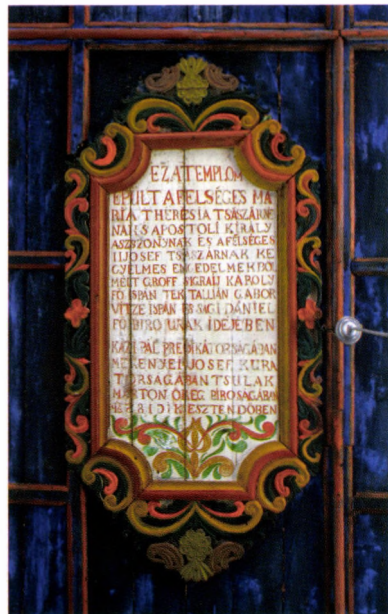 EZ A TEMPLOM
EPULT A FELSÉGES MA
RIA THERESIA TSÁSZÁRNÉ
NAK S APOSTOLI KIRÁLY
ASZSZONYNAK ES A FELSÉGES
II JOSEF TSÁSZÁRNAK KE
GYELMES ENGEDELMEKBŐL
MELT GROFF SIGRAI KAROLY
FŐ ISPÁN TEK TALLIÁN GABOR
VITZE ISPÁN ES SAGI DÁNIEL
FŐ BIRO URAK IDEJEBEN
KAZI PÁL PREDIKÁTORSAGÁBAN
MEKENYEI JOSEF KURA
TORSAGÁBAN TSULAK
MÁRTON ÖREG BIROSAGÁBAN
ESZTENDŐBEN